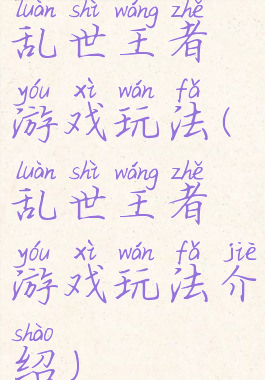 luàn shì wáng zhě
乱世王者
yóu xì wán fǎ
游戏玩法(
luàn shì wáng zhě
乱世王者
yóu xì wán fǎ jiè
游戏玩法介
shào
绍)